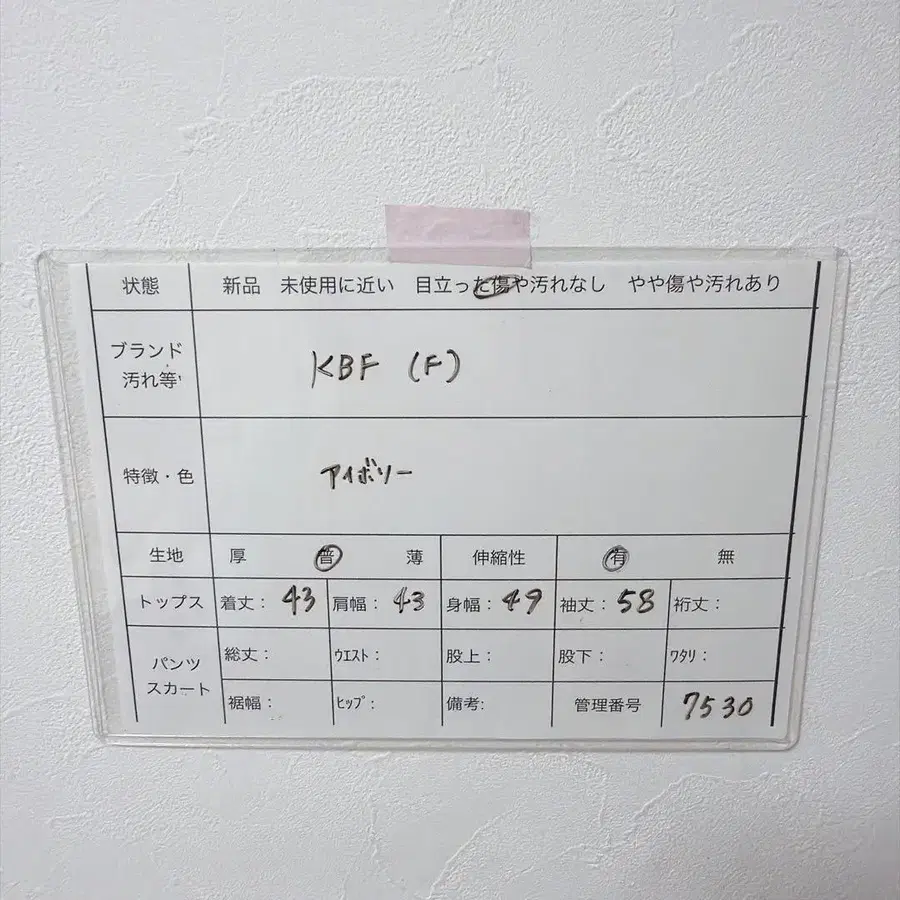 状態 新品 未使用に近い 目立った傷や汚れなし やや傷や汚れあり
ブランド
汚れ等
KBF (F)
特徴・色 アイボリー
生地 厚 普 薄 伸縮性 有 無
トップス 着丈: 43 肩幅: 43 身幅: 49 袖丈: 58 裄丈:
パンツ
スカート
総丈: ウエスト: 股上: 股下: ワタリ:
裾幅: ヒップ: 備考: 管理番号 7530